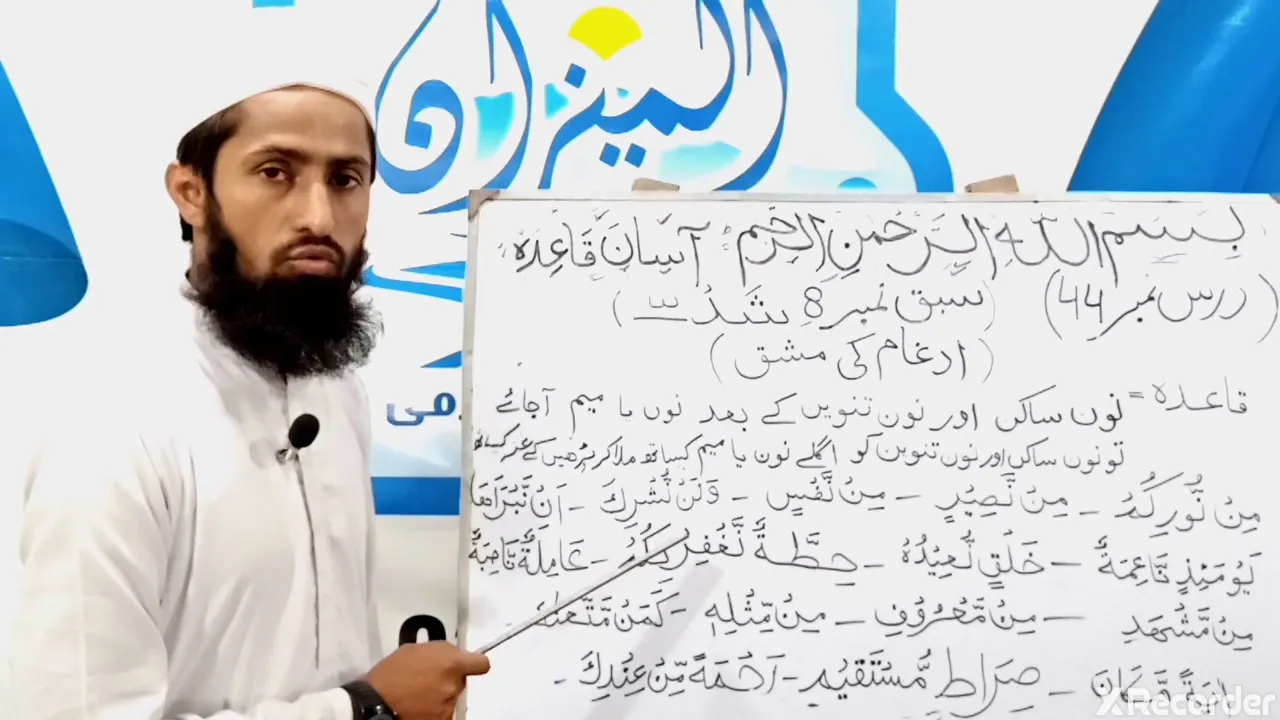 الميزان
بِسْمِ اللّٰهِ الرَّحْمٰنِ الرَّحِيْمِ آسَان قَاعِدَہ
(درس نمبر 44) (سبق نمبر 8 شَدْ ــّـ)
(ادغام کی مشق)
قاعدہ = نون ساکن اور نون تنوین کے بعد نون یا میم آجائے
تو نون ساکن اور نون تنوین کو اگلے نون یا میم کیساتھ ملا کر پڑھیں گے غنہ کیساتھ
مِنْ نُّوْرِكُمْ - مِنْ نَّصِيْرٍ - مِنْ نَّفْسٍ - وَلَنْ نُّشْرِكَ - اَنْ نَّبْرَاَهَا
يَوْمَئِذٍ نَّاعِمَةٌ - خَلْقٍ نُّعِيْدُهٗ - حِطَّةٌ نَّغْفِرْلَكُمْ - عَامِلَةٌ نَّاصِبَةٌ
مِنْ مَّشْهَدِ - مِنْ مَّعْرُوْفٍ - مِنْ مِّثْلِهٖ - كَمَنْ مَّتَّعْنٰهُ
اٰيَةً مَّكَانَ - صِرَاطٍ مُّسْتَقِيْمٍ - رَحْمَةً مِّنْ عِنْدِكَ -
XRecorder